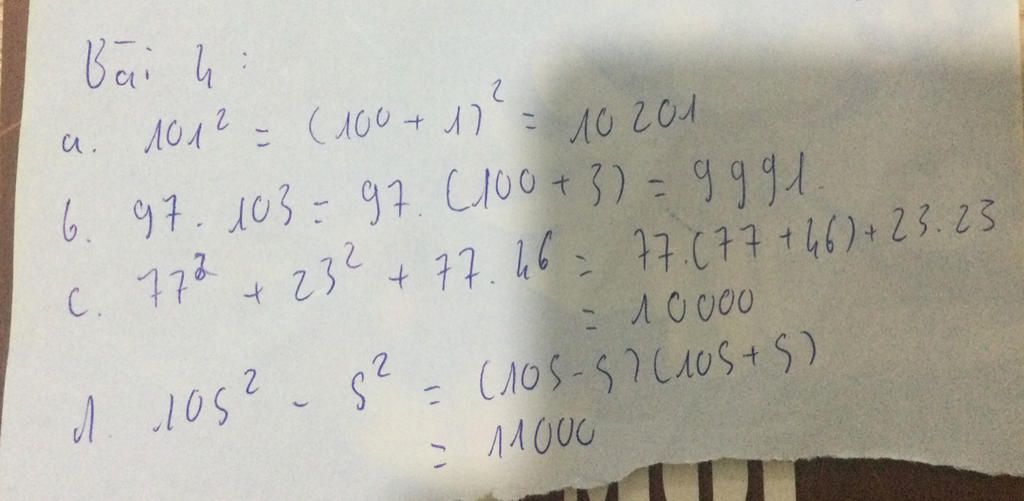 Bài 4:
a. 101² = (100 + 1)² = 10201
b. 97. 103 = 97. (100 + 3) = 9991.
c. 77² + 23² + 77. 46 = 77.(77 + 46) + 23.23
= 10000
d. 105² - 5² = (105 - 5)(105 + 5)
= 11000